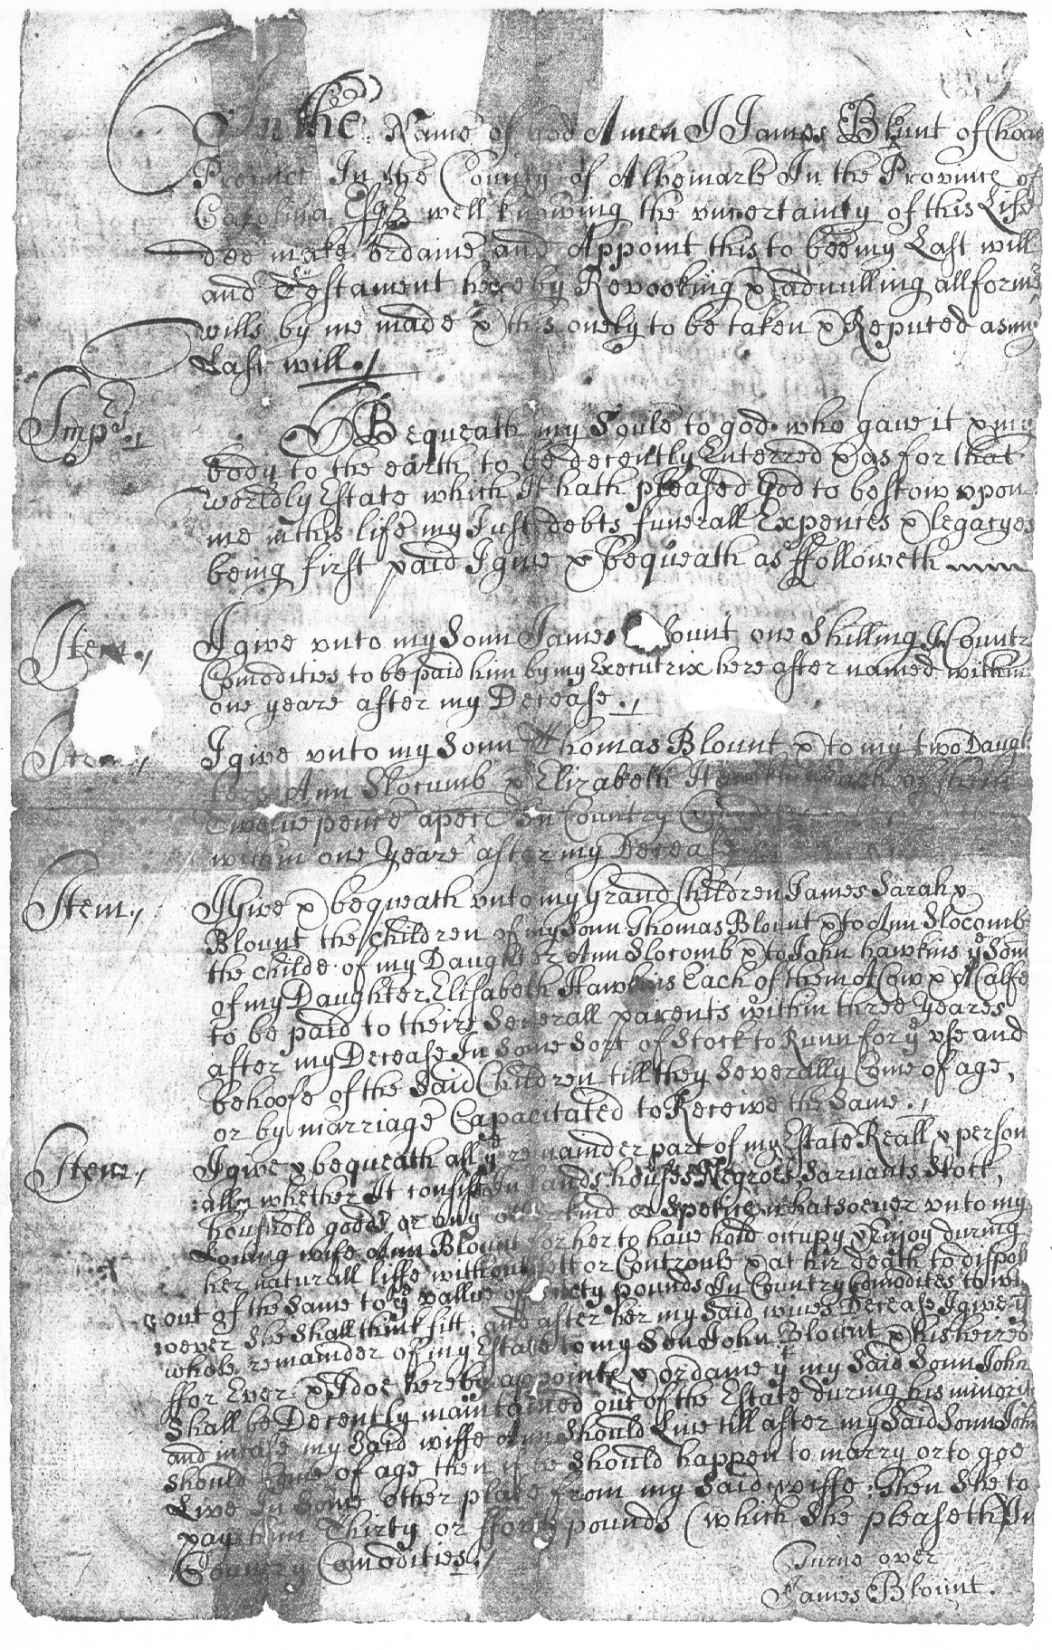 In the Name of God Amen I James Blount of Chow
Precinct In the County of Albemarle In the Province of
Carolina Esqr well knowing the vncertainty of this Life
doe make ordaine and Appoint this to bee my Last will
and Testament hereby Revooking & adnulling all forme
wills by me made & this onely to be taken & Reputed as my
Last will./
Imp. I Bequeath my Soule to god who gave it & my
body to the earth to be decently Enterred & as for that
worldly Estate which It hath pleased God to bestow vpon
me in this life my Just debts funerall Expences & legacyes
being first paid I give & bequeath as ffolloweth
Item./ I give vnto my Sonn James Blount one Shilling In Countr
Comodities to be paid him by my Executrix here after named within
one yeare after my Decease./
Item./ I give vnto my Sonn Thomas Blount & to my two Daugh
ters Ann Slocumb & Elizabeth
Twelve pence apece In Country
within one yeare after my Decease
Item./ I Give & bequeath vnto my Grand Children James Sarah &
Blount the Children of my Sonn Thomas Blount & to Ann Slocomb
the childe of my Daughter Ann Slocomb & to John Hawkins ye Sonn
of my Daughter Elisabeth Hawkins Each of them A Cow & Calfe
to be paid to theire Severall parents within three yeares
after my Decease In Some Sort of Stock to Runn for ye vse and
behoofe of the Said Children till they Severally Come of age,
or by marriage Capacitated to Receive the Same./
Item./ I give & bequeath all ye remainder part of my Estate Reall & person
all, whether It consist In lands houses Negroes Sarvants Stock,
houshold goods or any other kind or Spetice whatsoever vnto my
Loving wife Ann Blount for her to have hold occupy & Enjoy during
her naturall liffe without lett or Controule & at hir death to dispose
out of the Same to ye vallue of pounds In Country Comodities to who
soever She Shall think fitt, and after her my Said wives Decease I give ye
whole remainder of my Estate to my Son John Blount & his heires
ffor Ever & I doe hereby appointe & ordaine yt my Said Sonn John
Shall be Decently maintained out of the Estate during his minority
and incase my Said wiffe Ann Should Live till after my Said Sonn John
Should come of age then if he Should happen to marry or to goe
Live In Some other place from my Said wiffe, Then She to
pay him Thirty or fforty pounds (which She pleaseth) In
Country Comodities./
Turne over
James Blount.